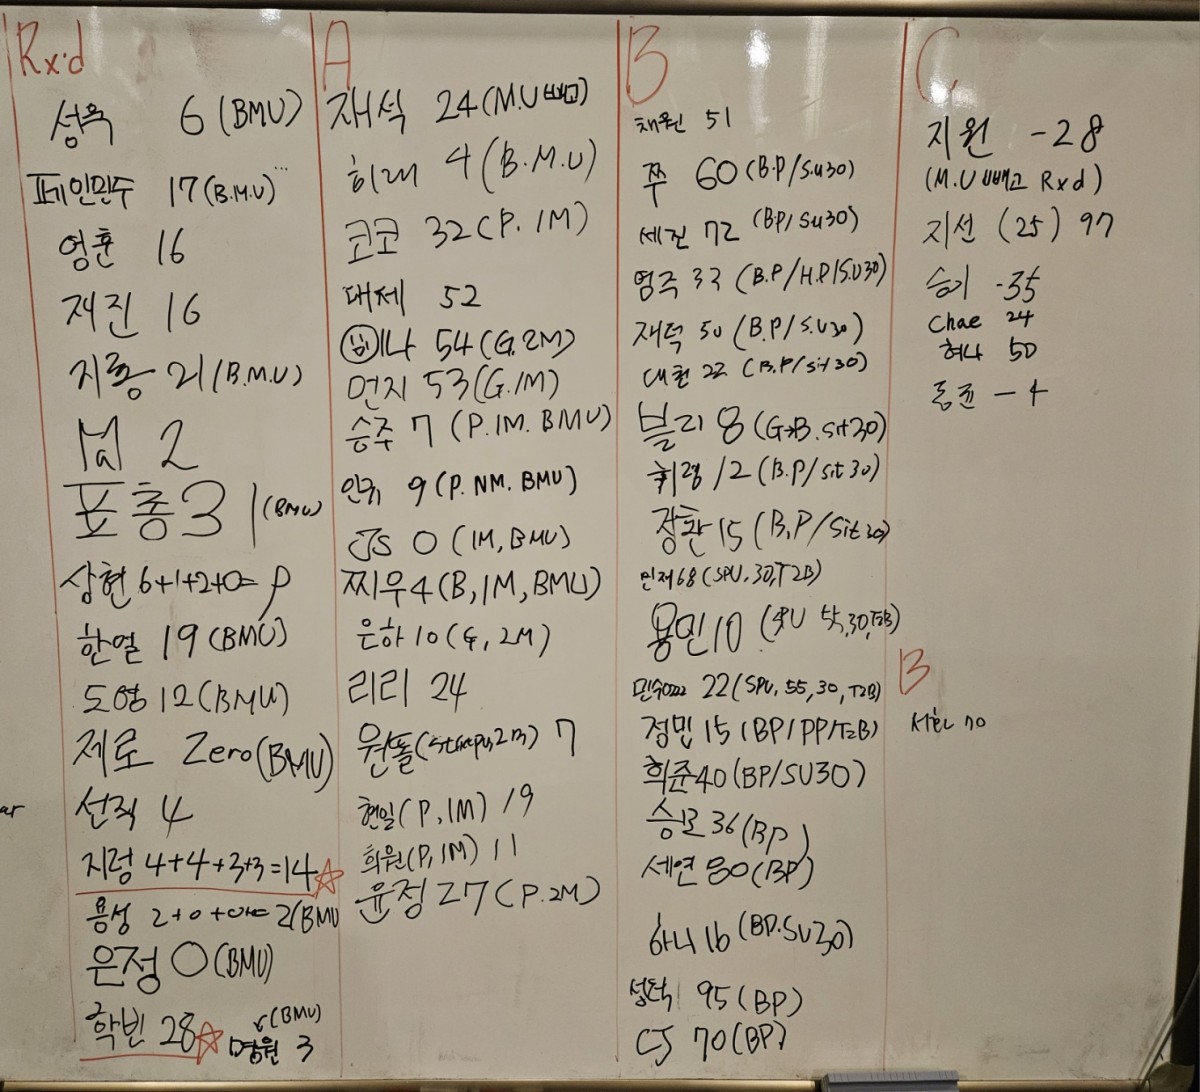 Rx'd
성욱 6 (BMU)
페인민수 17 (B.M.U)
영훈 16
재진 16
지룡 21 (B.M.U)
2
표총3 1 (BMU)
상현 6+1+2+0=9
한얼 19 (BMU)
도영 12 (BMU)
제로 Zero (BMU)
선직 4
지렁 4+4+3+3=14
용성 2+0+0+0=2 (BMU
은정 0 (BMU)
학빈 28
(BMU)
명원 3
A
재석 24 (M.U 빼고)
히래 4 (B.M.U)
코코 32 (P. 1M)
대체 52
나 54 (G. 2M)
먼지 53 (G. 1M)
승주 7 (P. 1M. BMU)
인귀 9 (P. NM. BMU)
JS 0 (1M, BMU)
찌우 4 (B, 1M, BMU)
은하 10 (G, 2M)
리리 24
원돌 7
현일 (P, 1M) 19
희원 (P, 1M) 11
윤정 27 (P. 2M)
B
채원 51
쭈 60 (B.P/S.U30)
세진 72 (B.P/SU30)
영주 33 (B.P/H.P/S.U30)
재덕 50 (B.P/S.U30)
대현 22 (B.P/sit30)
블리 8 (G→B. sit30)
휘령 12 (B.P/sit30)
장환 15 (B.P/sit30)
민재 68 (SPU, 30, T2B)
용민 10 (SPU 55, 30, T2B)
민수 22 (SPU, 55, 30, T2B)
정민 15 (BP/PP/T2B)
희준 40 (BP/SU30)
승모 36 (BP)
세연 80 (BP)
하니 16 (BP.SU30)
성탁 95 (BP)
CJ 70 (BP)
C
지원 -28
(M.U 빼고 Rxd)
지선 (25) 97
승기 -35
Chae 24
허나 50
동균 -4
B
서현 70
ar